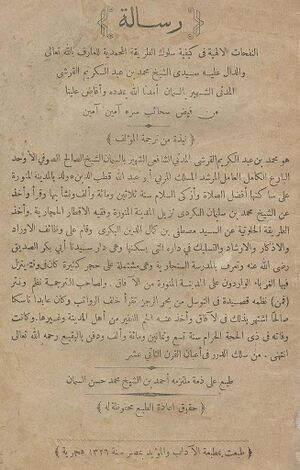 رسالة
النفحات الالهية فى كيفية سلوك الطريقة المحمدية للعارف بالله تعالى
والدال عليه سيدى الشيخ محمد بن عبد الكريم القرشى
المدنى الشهير بالسمان أمدنا الله بمدده وأفاض علينا
من فيض سحائب سره آمين آمين
﴿ نبذة من ترجمة المؤلف ﴾
هو محمد بن عبد الكريم القرشى المدنى الشافعى الشهير بالسمان الشيخ الصالح الصوفى الأوحد
البارع الكامل العامل المرشد المسلك المربى أبو عبد الله قطب الدين ولد بالمدينة المنورة
على ساكنها أفضل الصلاة وأزكى السلام سنة ثلاثين ومائة وألف ونشأ بها وقرأ وأخذ
عن الشيخ محمد بن سليمان الكردى نزيل المدينة المنورة وفقيه الاقطار الحجازية وأخذ
الطريقة الخلوتية عن السيد مصطفى بن كمال الدين البكرى وقام على وظائف الاوراد
والاذكار والارشاد والتسليك فى داره التى يسكنها وهى دار سيدنا أبى بكر الصديق
رضى الله عنه وتعرف بالمدرسة السنجارية وهى مشتملة على حجر كثيرة كان ينزل
فيها الغرباء الواردون على المدينة المنورة من الآفاق ولصاحب الترجمة نظم ونثر
(فمن) نظمه قصيدة فى التوسل من بحر الرجز تقرأ خلف الرواتب وكان عابدا ناسكا
صالحا اشتهر بذلك فى الآفاق وأخذ عنه الجم الغفير من أهل المدينة وغيرها وكانت
وفاته فى ذى الحجة الحرام سنة تسع وثمانين ومائة وألف ودفن بالبقيع رحمه الله تعالى
انتهى من سلك الدرر فى أعيان القرن الثانى عشر
طبع على ذمة ملتزمه أحمد بن الشيخ محمد حسن السمان
﴿ حقوق اعادة الطبع محفوظة له ﴾
﴿ طبعت بمطبعة الآداب والمؤيد بمصر سنة ١٣٢٦ هجرية ﴾